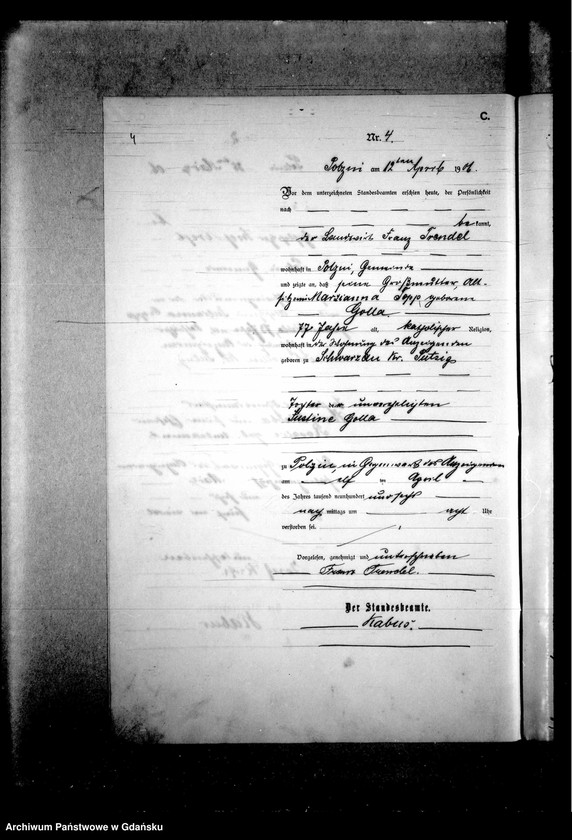 C.
4
Nr. 4.
Polzin am 12ten April 1906.
Vor dem unterzeichneten Standesbeamten erschien heute, der Persönlichkeit
nach
bekannt,
der Landwirt Franz Trendel
wohnhaft in Polzin, Gemeinde
und zeigte an, daß seine Großmutter, Alt-
sitzerin Marzianna Topp geborene
Golla
77 Jahre alt, katholischer Religion,
wohnhaft in der Wohnung des Anzeigenden
geboren zu Schwarzau Kr. Putzig
Tochter der unverehelichten
Justine Golla
zu Polzin, in Gegenwart des Anzeigenden
am elf ten April
des Jahres tausend neunhundert und sechs
nach mittags um acht Uhr
verstorben sei.
Vorgelesen, genehmigt und unterschrieben
Franz Trendel.
Der Standesbeamte.
Kabus.
Archiwum Państwowe w Gdańsku